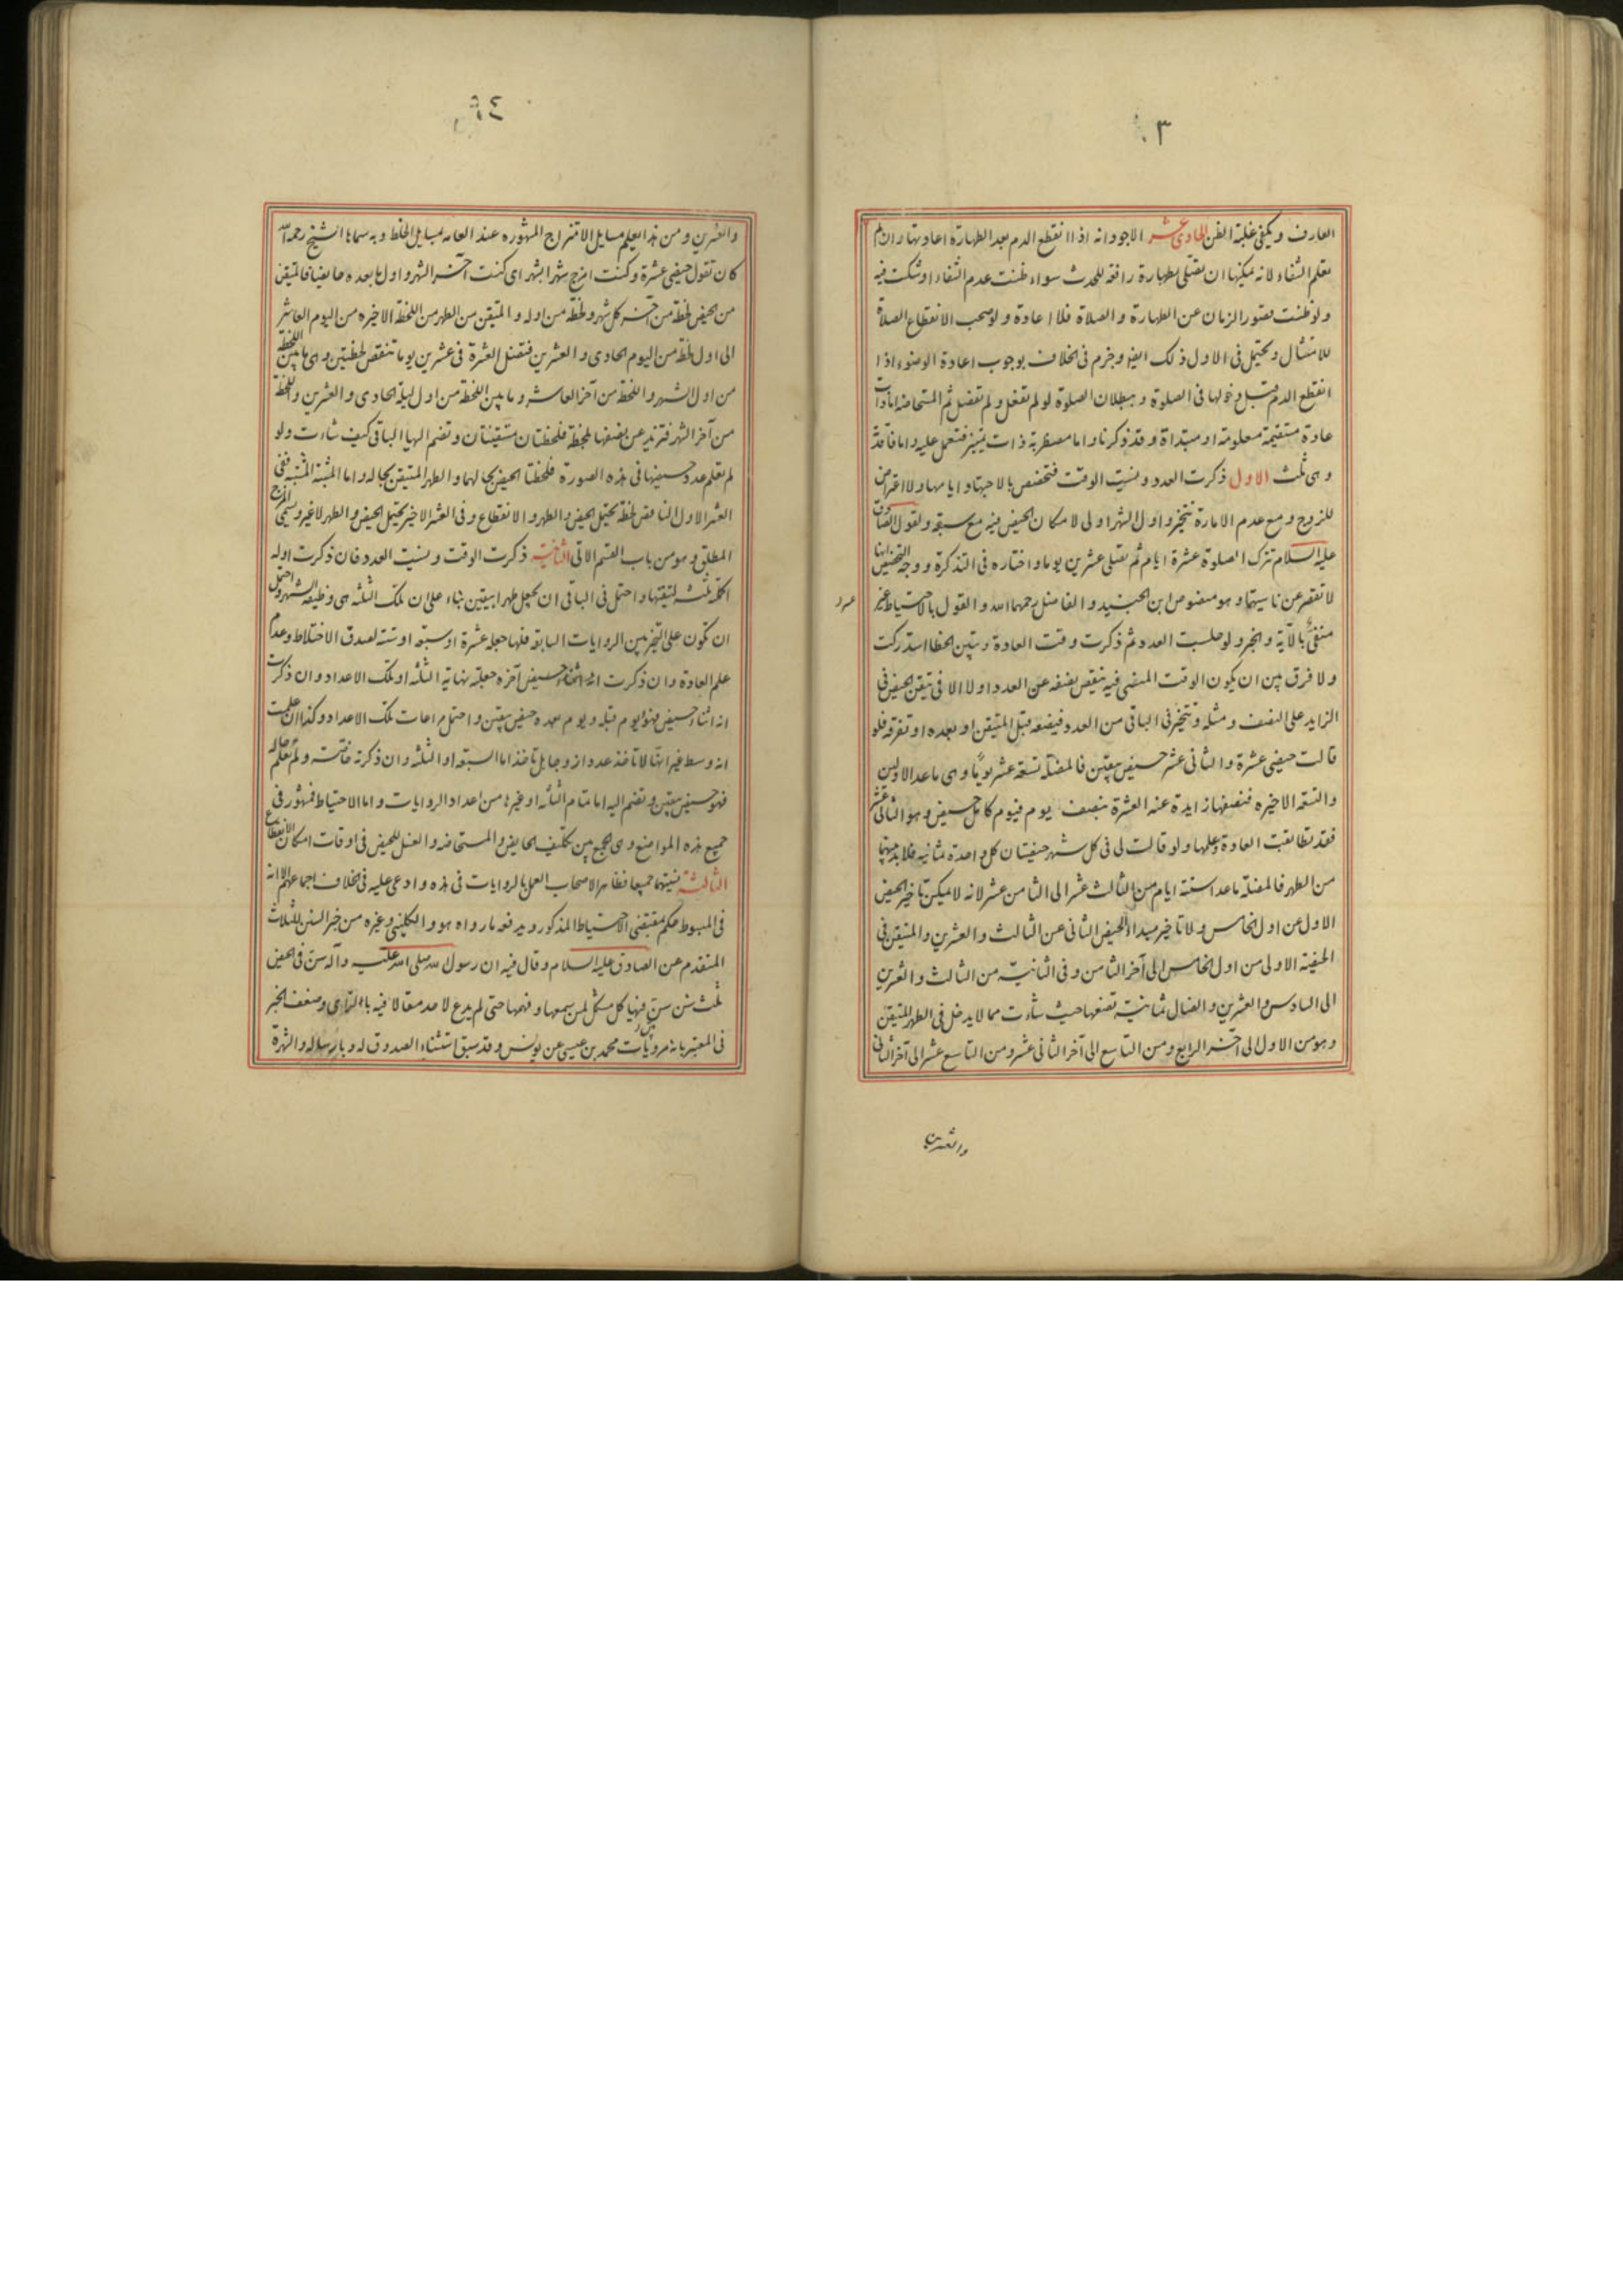 ٣٠
العارف ويكفي غلبة الظن الحادي عشر الاجود انه اذا انقطع الدم بعد الطهارة اعادتها وان لم
يعلم الشفاء لانه يمكنها ان تصلي بطهارة رافعة للحدث سواء ظنت عدم الشفاء او شكت فيه
ولو ظنت قصور الزمان عن الطهارة والصلاة فلا اعادة ولو صحب الانقطاع الصلاة
للامتثال ويحتمل في الاول ذلك ايضا وجزم في الخلاف بوجوب اعادة الوضوء اذا
انقطع الدم قبل دخولها في الصلوة وببطلان الصلوة لو لم تفعل ولم تفصل ثم المستحاضة اما ذات
عادة مستقيمة معلومة او مبتداة وقد ذكرنا واما مضطربة ذات تمييز فتعمل عليه واما فاقدة
وهي ثلث الاول ذكرت العدد ونسيت الوقت فتخصص بالاجتهاد ايامها ولا اعتراض
للزوج ومع عدم الامارة تتخير واول الشهر اولى لامكان الحيض فيه مع سبقه ولقول الصادق
عليه السلام تترك الصلوة عشرة ايام ثم تصلي عشرين يوما واختاره في التذكرة ووجه التخصيص انها
لا تقصر عن ناسيتهما وهو منصوص ابن الجنيد والفاضل رحمهما الله والقول بالاحتياط عسر
عسر
منفي بالآية والخبر ولو جلست العدد ثم ذكرت وقت العادة وتبين الخطا استدركت
ولا فرق بين ان يكون الوقت المنسي فيه ينقص نصفه عن العدد او لا الا في تيقن الحيض في
الزايد على النصف ومثله وتتخير في الباقي من العدد فيضعه قبل المتيقن او بعده او تفرقه فلو
قالت حيضي عشرة والثاني عشر حيض بيقين فالمضلة تسعة عشر يوما وهي ما عدا الاولين
والتسعة الاخيره فنصفها زايدة عنه العشرة بنصف يوم فيوم كامل حيض وهو الثاني عشر
فقد تطابقت العادة وعلمها ولو قالت لي في كل شهر حيضتان كل واحدة ثمانية فلا بد بينهما
من الطهر فالمضلة ما عدا ستة ايام من الثالث عشر الى الثامن عشر لانه لا يمكن تاخير الحيض
الاول عن اول الخامس ولا تاخير مبدا الحيض الثاني عن الثالث والعشرين والمتيقن في
الحيضة الاولى من اول الخامس الى آخر الثامن وفي الثانية من الثالث والعشرين
الى السادس والعشرين والضال ثمانية تضعها حيث شاءت مما لا يدخل في الطهر المتيقن
وهو من الاول الى آخر الرابع ومن التاسع الى آخر الثاني عشر ومن التاسع عشر الى آخر الثاني
والعشرين
والعشرين ومن هذا يعلم مسايل الامتزاج المشهوره عند العامه بمسايل الخلط وبه سماها الشيخ رحمه الله
كان تقول حيضي عشرة وكنت امزج شهرا بشهر اي كنت آخر الشهر واول ما بعده حايضا فالمتيقن
من الحيض لحظة من آخر كل شهر ولحظة من اوله والمتيقن من الطهر من اللحظة الاخيره من اليوم العاشر
الى اول لحظة من اليوم الحادي والعشرين فتضل العشرة في عشرين يوما تنقص لحظتين وهي ما بين اللحظة
من اول الشهر واللحظة من آخر العاشر وما بين اللحظة من اول ليلة الحادي والعشرين واللحظة
من آخر الشهر فتزيد عن نصفها بلحظة فلحظتان متيقنتان وتضم اليها الباقي كيف شاءت ولو
لم تعلم عدد حيضها في هذه الصورة فلحظتا الحيض بحالهما والطهر المتيقن بحاله واما المشبه المشبه ففي
العشر الاول الناقص لحظة يحتمل الحيض والطهر والانقطاع وفي العشر الاخير يحتمل الحيض والطهر لا غير ويسمى المزج
المطلق وهو من باب القسم الاتي الثانية ذكرت الوقت ونسيت العدد فان ذكرت اوله
اكملته ثلثه لتيقنها واحتمل في الباقي ان يجعل طهرا بيقين بناء على ان تلك الثلثه هي وظيفة الشهر واحتمل
ان تكون على التخير بين الروايات السابقة فلها جعله عشرة او سبعة او ستة لصدق الاختلاط وعدم
علم العادة وان ذكرت انتهاء حيض آخره جعلته نهاية الثلثه او تلك الاعداد وان ذكرت
انه اثناء حيض فهو ويوم قبله ويوم بعده حيض بيقين واحتمل مراعات تلك الاعداد وكذا ان علمت
انه وسط غير انها لا تاخذ عددا زوجا بل تاخذ اما السبعة او الثلثه وان ذكرته خاصة ولم تعلم حاله
فهو حيض بيقين وتضم اليه اما تمام الثلثه او غيرها من اعداد الروايات واما الاحتياط فمشهور في
جميع هذه المواضع وهي الجمع بين تكليف الحايض والمستحاضه والغسل للحيض في اوقات امكان الانقطاع
الثالثة نسيتهما جميعا فظاهر الاصحاب العمل بالروايات في هذه وادعى عليه في الخلاف اجماعهم الا انه
في المبسوط حكم بمقتضى الاحتياط المذكور ويدفعه ما رواه هو والكليني وغيره من خبر السنن الثلاث
المتقدم عن الصادق عليه السلام وقال فيه ان رسول الله صلى الله عليه وآله سن في الحيض
ثلث سنن بين فيها كل مشكل لمن سمعها وفهمها حتى لم يدع لاحد مقالا فيه بالراي وضعف الخبر
في المعتبر بانه مرويات محمد بن عيسى عن يونس وقد سبق استثناء الصدوق له وبارساله والشهرة